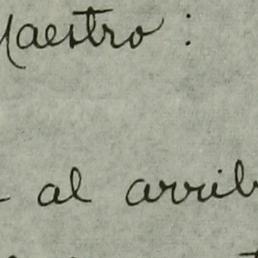 Maestro :
al arrib